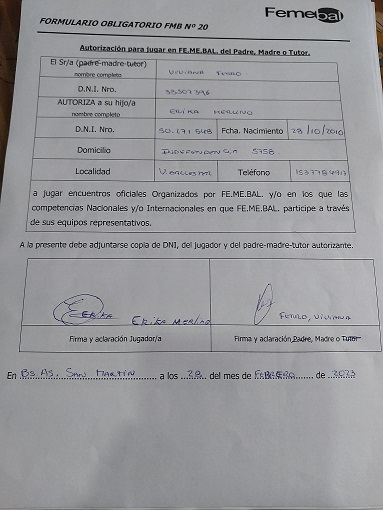 Femebal
FORMULARIO OBLIGATORIO FMB Nº 20
Autorización para jugar en FE.ME.BAL. del Padre, Madre o Tutor.
El Sr/a (padre-madre-tutor) VIVIANA
nombre completo
D.N.I. Nro. 33507396
AUTORIZA a su hijo/a ERIKA MERLINO
nombre completo
D.N.I. Nro. 50.271 548 Fcha. Nacimiento 28/10/2010
Domicilio INDEPENDENCIA 5758
Localidad Teléfono
a jugar encuentros oficiales Organizados por FE.ME.BAL. y/o en los que las
competencias Nacionales y/o Internacionales en que FE.ME.BAL. participe a través
de sus equipos representativos.
A la presente debe adjuntarse copia de DNI, del jugador y del padre-madre-tutor autorizante.
ERIKA ERIKA MERLINO VIVIANA
Firma y aclaración Jugador/a Firma y aclaración Padre, Madre o Tutor
En BS AS. SAN MARTÍN a los 28 del mes de FEBRERO de 2023